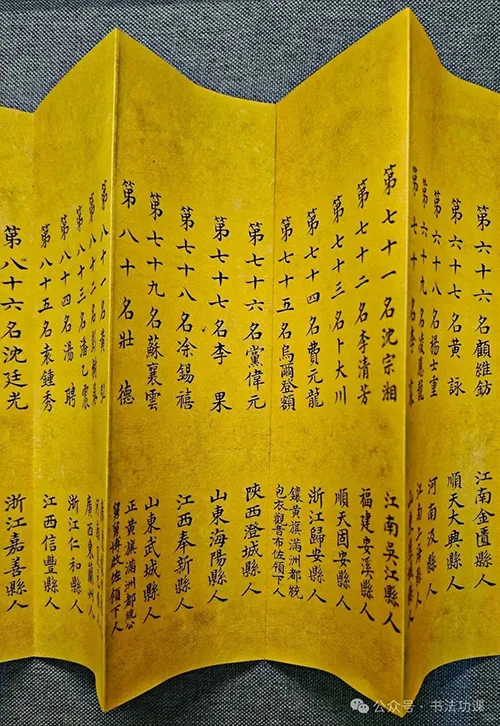 第六十六名顧維鈁 江南金匱縣人
第六十七名黄詠 順天大興縣人
第六十八名楊士重 河南汲縣人
第六十九名
第七十名李
第七十一名沈宗湘 江南吳江縣人
第七十二名李清芳 福建安溪縣人
第七十三名卜大川 順天固安縣人
第七十四名費元龍 浙江歸安縣人
第七十五名烏爾登額 鑲黄旗滿洲都統包衣觀音布佐領下人
第七十六名黨偉元 陝西澄城縣人
第七十七名李果 山東海陽縣人
第七十八名涂錫禧 江西奉新縣人
第七十九名蘇襄雲 山東武城縣人
第八十名壯德 正黄旗滿洲都統公佐領下人
第八十一名黄
第八十二名彭
第八十三名潘乙震 廣西東蘭州人
第八十四名湯聘 浙江仁和縣人
第八十五名袁鍾秀 江西信豐縣人
第八十六名沈廷光 浙江嘉善縣人
公众号·书法功课